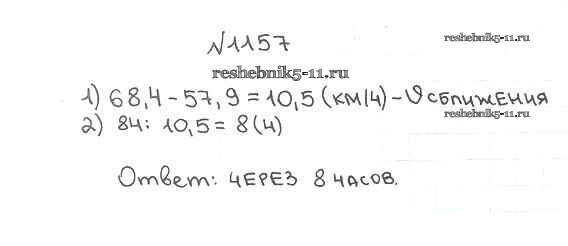 №1157
reshebnik5-11.ru
reshebnik5-11.ru
1) 68,4 - 57,9 = 10,5 (км/ч) - υ сближения
reshebnik5-11.ru
2) 84 : 10,5 = 8 (ч)
Ответ: через 8 часов.